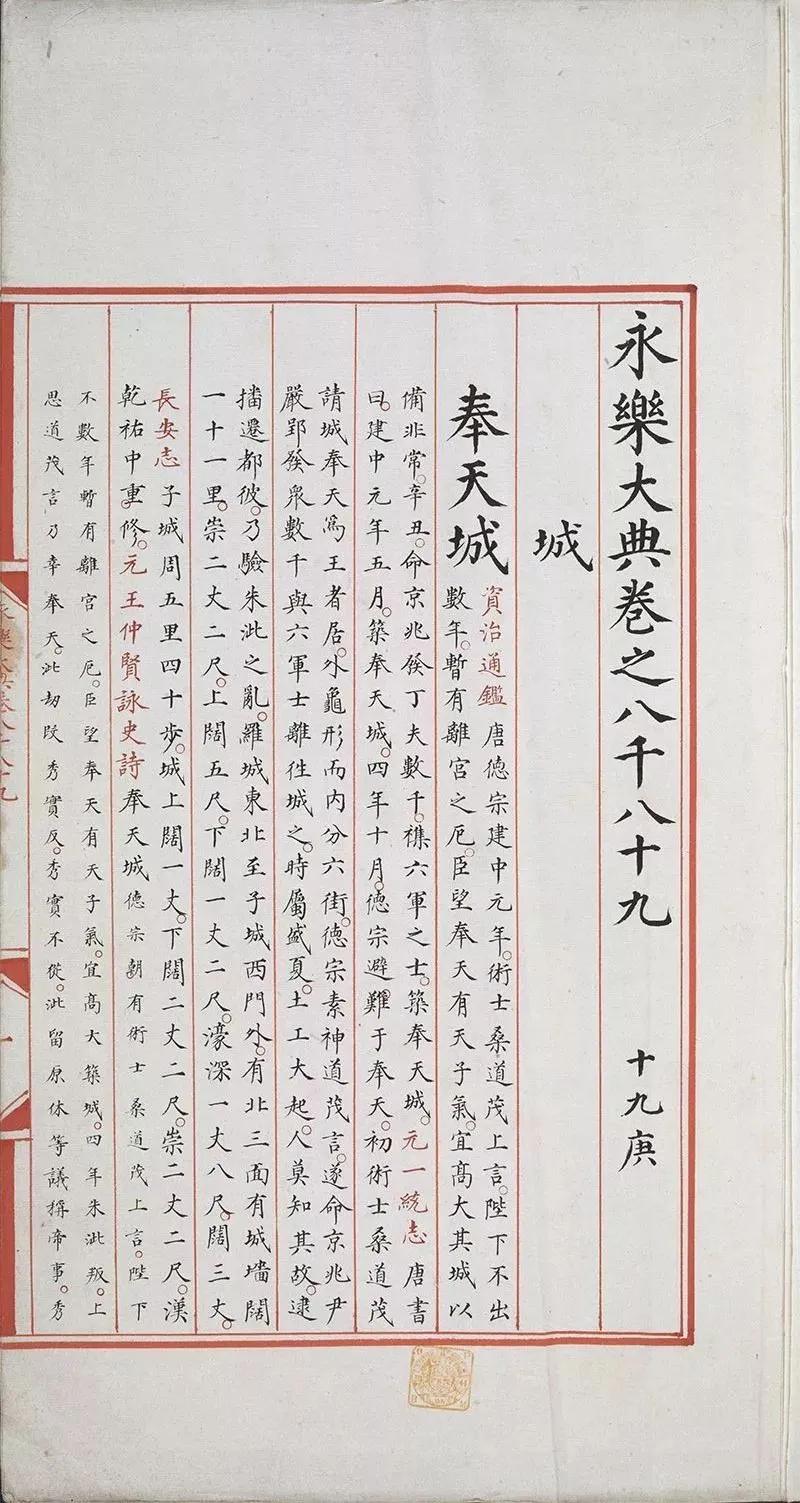 永樂大典卷之八千八十九 十九庚
城
奉天城
資治通鑑唐德宗建中元年。術士桑道茂上言。陛下不出
數年。暫有離宮之厄。臣望奉天有天子氣。宜髙大其城以
備非常。辛丑。命京兆發丁夫數千。襍六軍之士。築奉天城。元一統志唐書
曰。建中元年五月。築奉天城。四年十月。德宗避難于奉天。初術士桑道茂
請城奉天爲王者居。外龜形而内分六街。德宗素神道茂言。遂命京兆尹
嚴郢發衆數千與六軍士離徃城之。時屬盛夏。土工大起。人莫知其故。逮
播遷都彼。乃驗朱泚之亂。羅城東北至子城西門外。有北三面有城墻闊
一十一里。崇二丈二尺。上闊五尺。下闊一丈二尺。濠深一丈八尺。闊三丈。
長安志子城周五里四十步。城上闊一丈。下闊二丈二尺。崇二丈二尺。漢
乾祐中重。修。元王仲賢詠史詩奉天城德宗朝有術士桑道茂上言。陛下
不數年暫有離宮之厄。臣望奉天有天子氣。宜髙大築城。四年朱泚叛。上
思道茂言乃幸奉天。泚劫段秀實反。秀實不從。泚留原休等議稱帝事。秀
永樂大典卷八千八十九
一